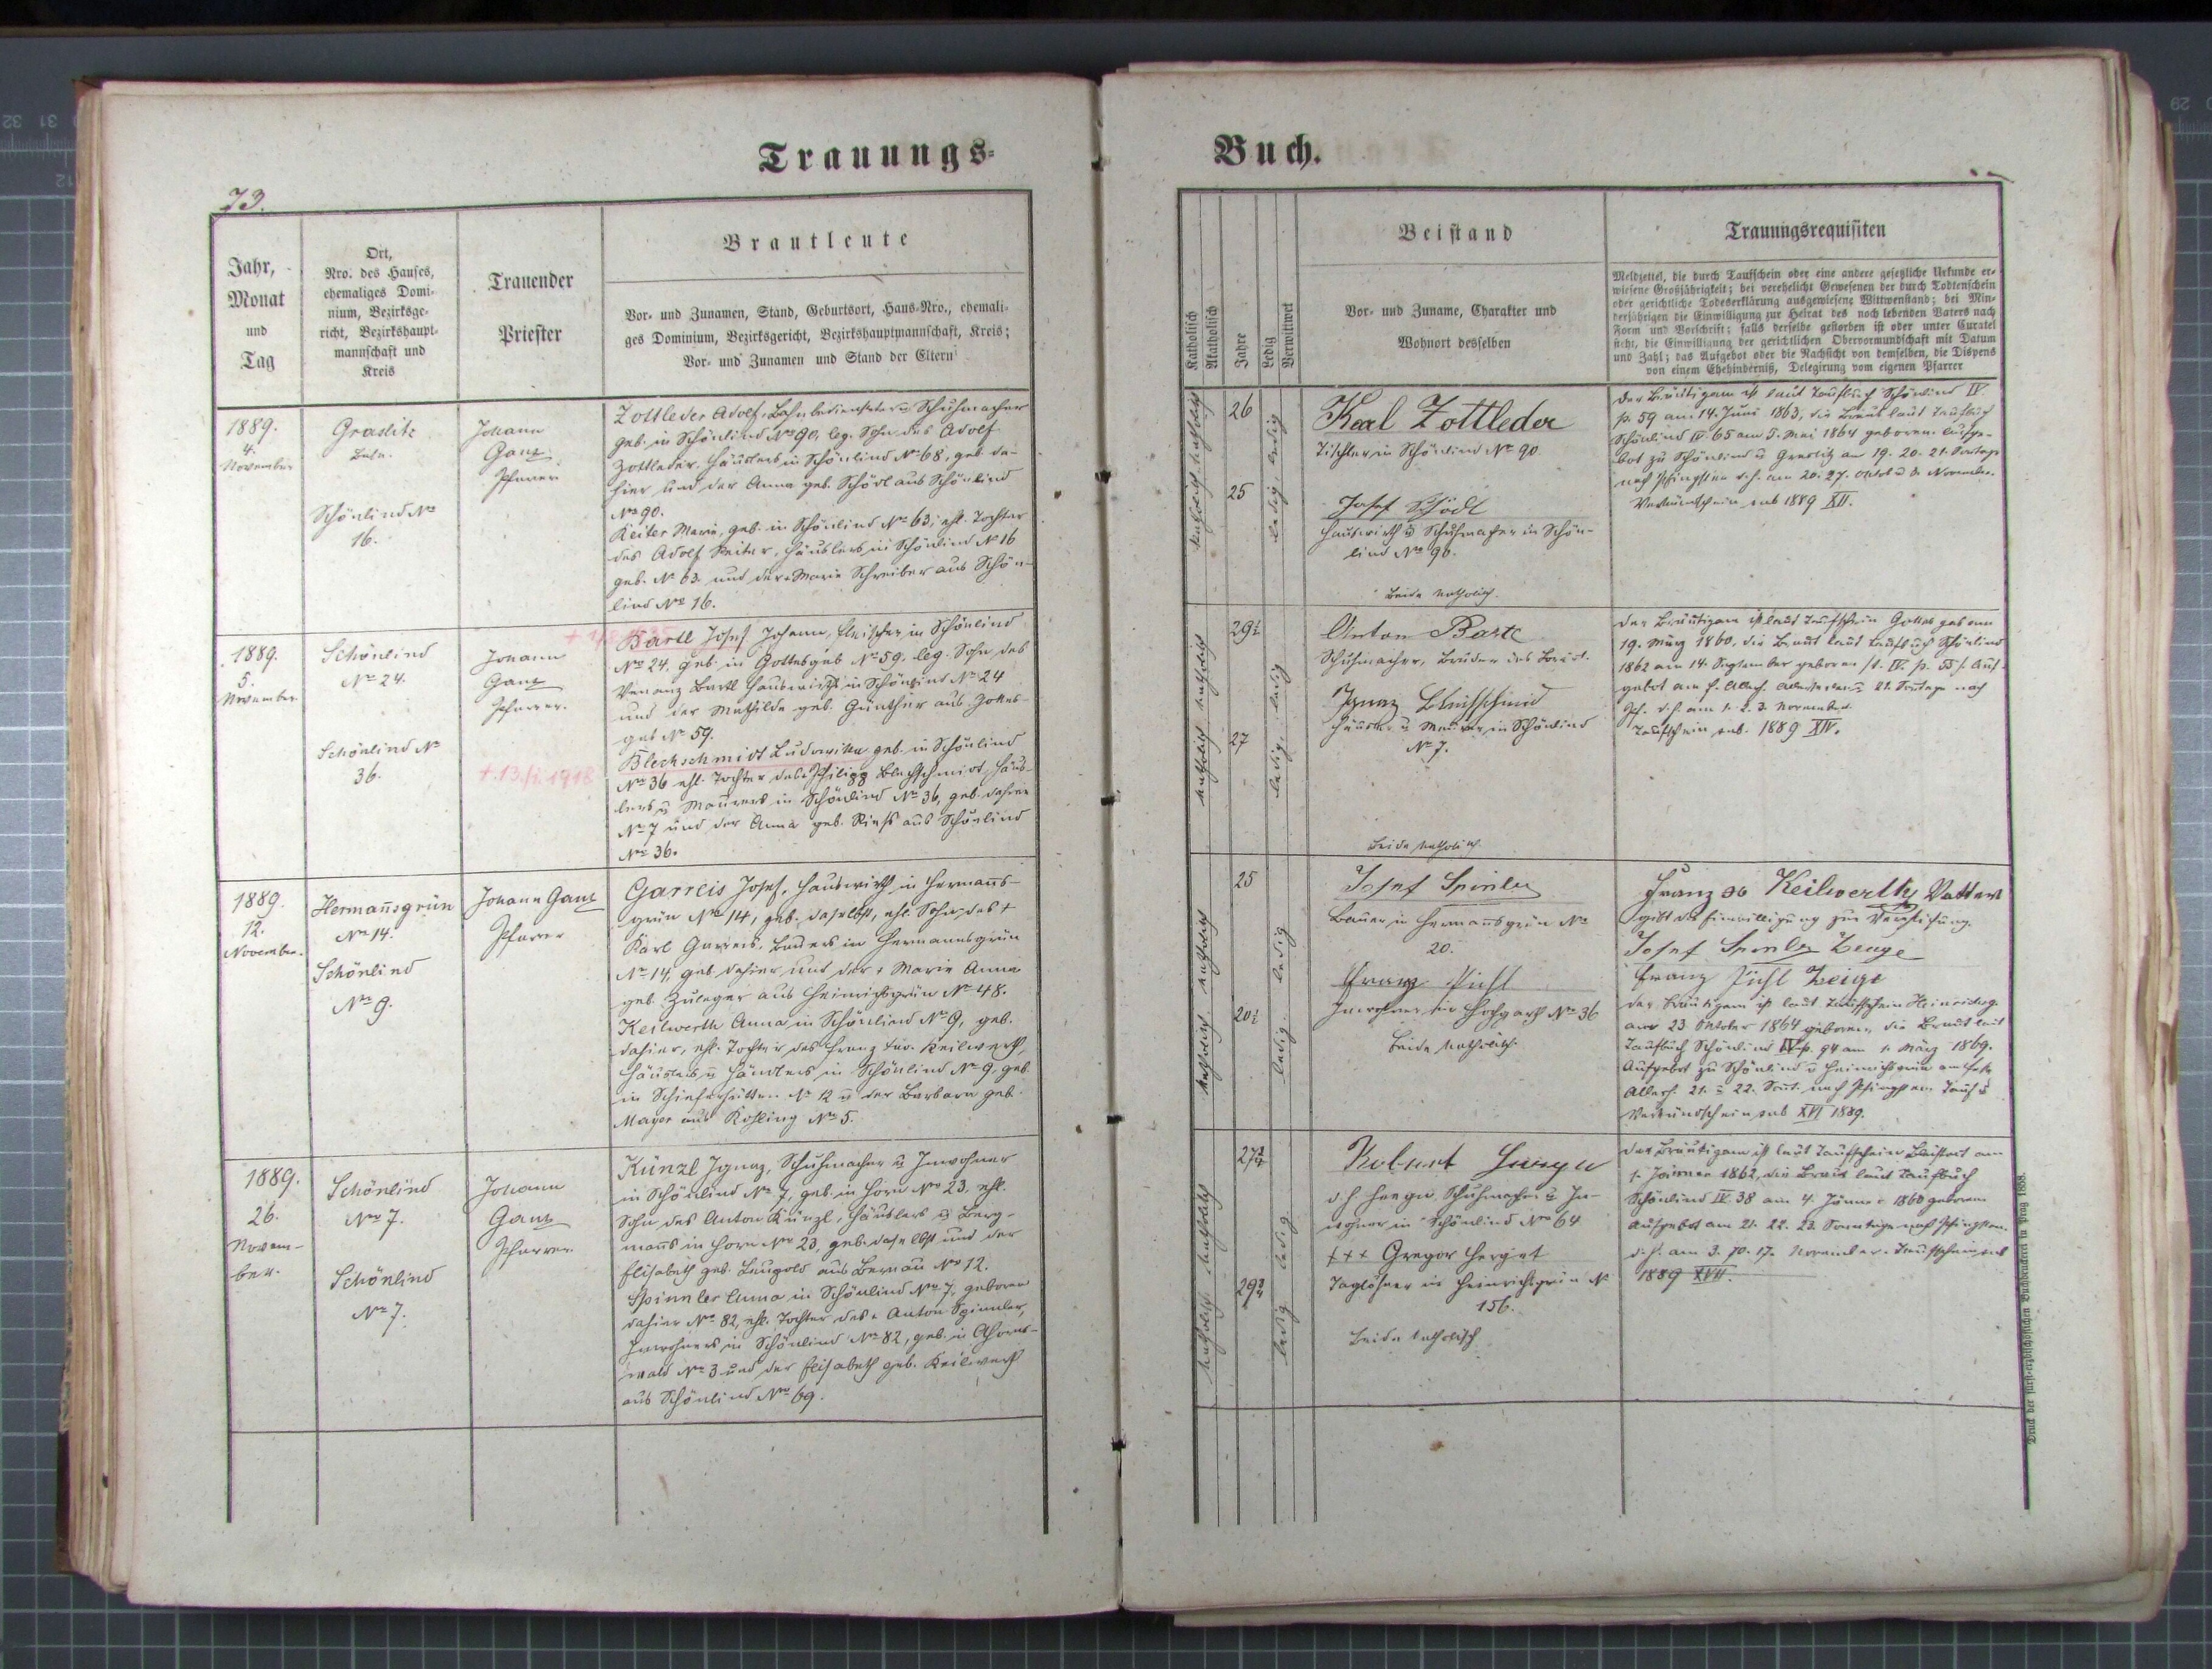 Trauungs-
73.
Jahr,
Monat
und
Tag
Ort,
Nro. des Hauses,
ehemaliges Domi-
nium, Bezirksge-
richt, Bezirkshaupt-
mannschaft und
Kreis
Trauender
Priester
Brautleute
Vor- und Zunamen, Stand, Geburtsort, Haus-Nro., ehemali-
ges Dominium, Bezirksgericht, Bezirkshauptmannschaft, Kreis;
Vor- und Zunamen und Stand der Eltern
1889.
4.
November
Graslitz
Schönlind No
16.
Johann
Ganz
Pfarrer
Zottleder Adolf, Bahnbediensteter u Schuhmacher
geb. in Schönlind No 90, leg. Sohn des Adolf
Zottleder Häuslers in Schönlind No 68, geb. da-
hier und der Anna geb. Schödl aus Schönlind
No 90.
Keiler Marie, geb. in Schönlind No 63, ehl. Tochter
des Adolf Keiler, Häuslers in Schönlind No 16
geb. No 63. und der Marie Schreiber aus Schön-
lind No 16.
1889.
5.
November
Schönlind
No 24.
Schönlind No
36.
Johann
Ganz
Pfarrer.
† 13. 1918
Bartl Josef Johann, Fleischer in Schönlind
No 24, geb. in Gottesgab No 59, leg. Sohn des
Venanz Bartl Hauswirth in Schönlind No 24
und der Mathilde geb. Günther aus Gottes-
gab No 59.
Blechschmidt Ludowika geb. in Schönlind
No 36 ehl. Tochter des Philipp Blechschmidt, Häus-
lers u Maurers in Schönlind No 36, geb. dahier
No 7 und der Anna geb. Rieß aus Schönlind
No 36.
1889.
12.
November.
Hermannsgrün
No 14.
Schönlind
No 9.
Johann Ganz
Pfarrer
Garreis Josef, Hauswirth in Hermanns-
grün No 14, geb. daselbst, ehl. Sohn des †
Karl Garreis, Bauers in Hermannsgrün
No 14, geb. dahier und der † Marie Anna
geb. Zuleger aus Heinrichsgrün No 48.
Keilwerth Anna in Schönlind No 9, geb.
dahier, ehl. Tochter des Franz Xav. Keilwerth,
Häuslers u Händlers in Schönlind No 9, geb.
in Schieferhütten No 12 u der Barbara geb.
Mayer aus Kohling No 5.
1889.
26.
Novem-
ber.
Schönlind
No 7.
Schönlind
No 7.
Johann
Ganz
Pfarrer
Künzl Ignaz, Schuhmacher u Inwohner
in Schönlind No 7, geb. in Horn No 23, ehl.
Sohn des Anton Künzl, Häuslers u Berg-
manns in Horn No 23, geb. daselbst und der
Elisabeth geb. Leupold aus Bernau No 12.
Spinnler Anna in Schönlind No 7, geboren
dahier No 82, ehl. Tochter des † Anton Spinnler,
Inwohners in Schönlind No 82, geb. in Ahorns-
wald No 3 und der Elisabeth geb. Keilwerth
aus Schönlind No 69.
Buch.
Katholisch
Akatholisch
Jahre
Ledig
Verwittwet
Beistand
Vor- und Zuname, Charakter und
Wohnort desselben
Trauungsrequisiten
Meldzettel, die durch Taufschein oder eine andere gesetzliche Urkunde er-
wiesene Großjährigkeit; bei verehelicht Gewesenen der durch Todtenschein
oder gerichtliche Todeserklärung ausgewiesene Wittwenstand; bei Min-
derjährigen die Einwilligung zur Heirat des noch lebenden Vaters nach
Form und Vorschrift; falls derselbe gestorben ist oder unter Curatel
steht, die Einwilligung der gerichtlichen Obervormundschaft mit Datum
und Zahl; das Aufgebot oder die Nachsicht von demselben, die Dispens
von einem Ehehinderniß, Delegirung vom eigenen Pfarrer
katholisch katholisch
26
25
ledig, ledig
Karl Zottleder
Tischler in Schönlind No 90
Josef Schödl
Hauswirth u Schuhmacher in Schön-
lind No 90.
Beide katholisch.
Der Bräutigam ist laut Taufbuch Schönlind IV.
p. 59 am 14. Juni 1863, die Braut laut Taufbuch
Schönlind IV. 65 am 5. Mai 1864 geboren. Aufge-
bot zu Schönlind u Graslitz am 19. 20. 21. Sontage
nach Pfingsten d. h. am 20. 27. Oktob u 3. November.
Verkündschein sub 1889 XII.
katholisch katholisch
29½
27
ledig ledig
Anton Bartl
Schuhmacher, Bruder des Bräut.
Ignaz Blechschmid
Häusler u Maurer in Schönlind
No 7.
Beide katholisch
Der Bräutigam ist laut Taufschein Gottesgab am
19. März 1860, die Braut laut Taufbuch Schönlind
1862 am 14. September geboren /t. IV. p. 55/. Auf-
gebot am 21. Sontage nach
Pf. d. h. am 1. u. 3. November.
Taufschein sub. 1889 XIV.
katholisch katholisch
25
20½
ledig ledig
Josef Spinler
Bauer in Hermannsgrün No
20.
Franz Pichl
Inwohner in Hochgarth No 36
Beide katholisch
Franz Keilwerth Vatter
gibt die Einwilligung zur Verehlichung.
Josef Spinler Zeuge
Franz Pichl Zeige
Der Bräutigam ist laut Taufschein Heinrichsg.
am 23. Oktober 1864 geboren, die Braut laut
Taufbuch Schönlind IV p. 94 am 1. März 1869.
Aufgebot zu Schönlind u Heinrichsgrün am Feste
Allerh. 21. u 22. Sont. nach Pfingsten. Tauf u
Verkündschein sub XVI 1889.
katholisch katholisch
27¾
29¾
ledig ledig
d. h. Schuhmacher u In-
wohner in Schönlind No 64
+++ Gregor Herget
Taglöhner in Heinrichsgrün No
156.
Beide katholisch
Der Bräutigam ist laut Taufschein am
1. Jänner 1862, die Braut laut Taufbuch
Schönlind IV 38 am 4. Jänner 1860 geboren
Aufgebot am 21. 22. 23. Sonntage nach Pfingsten.
d. h. am 3. 10. 17. November. Taufschein sub
1889 XVII.
Druck der fürst-erzbischöflichen Buchdruckerei in Prag 1868.